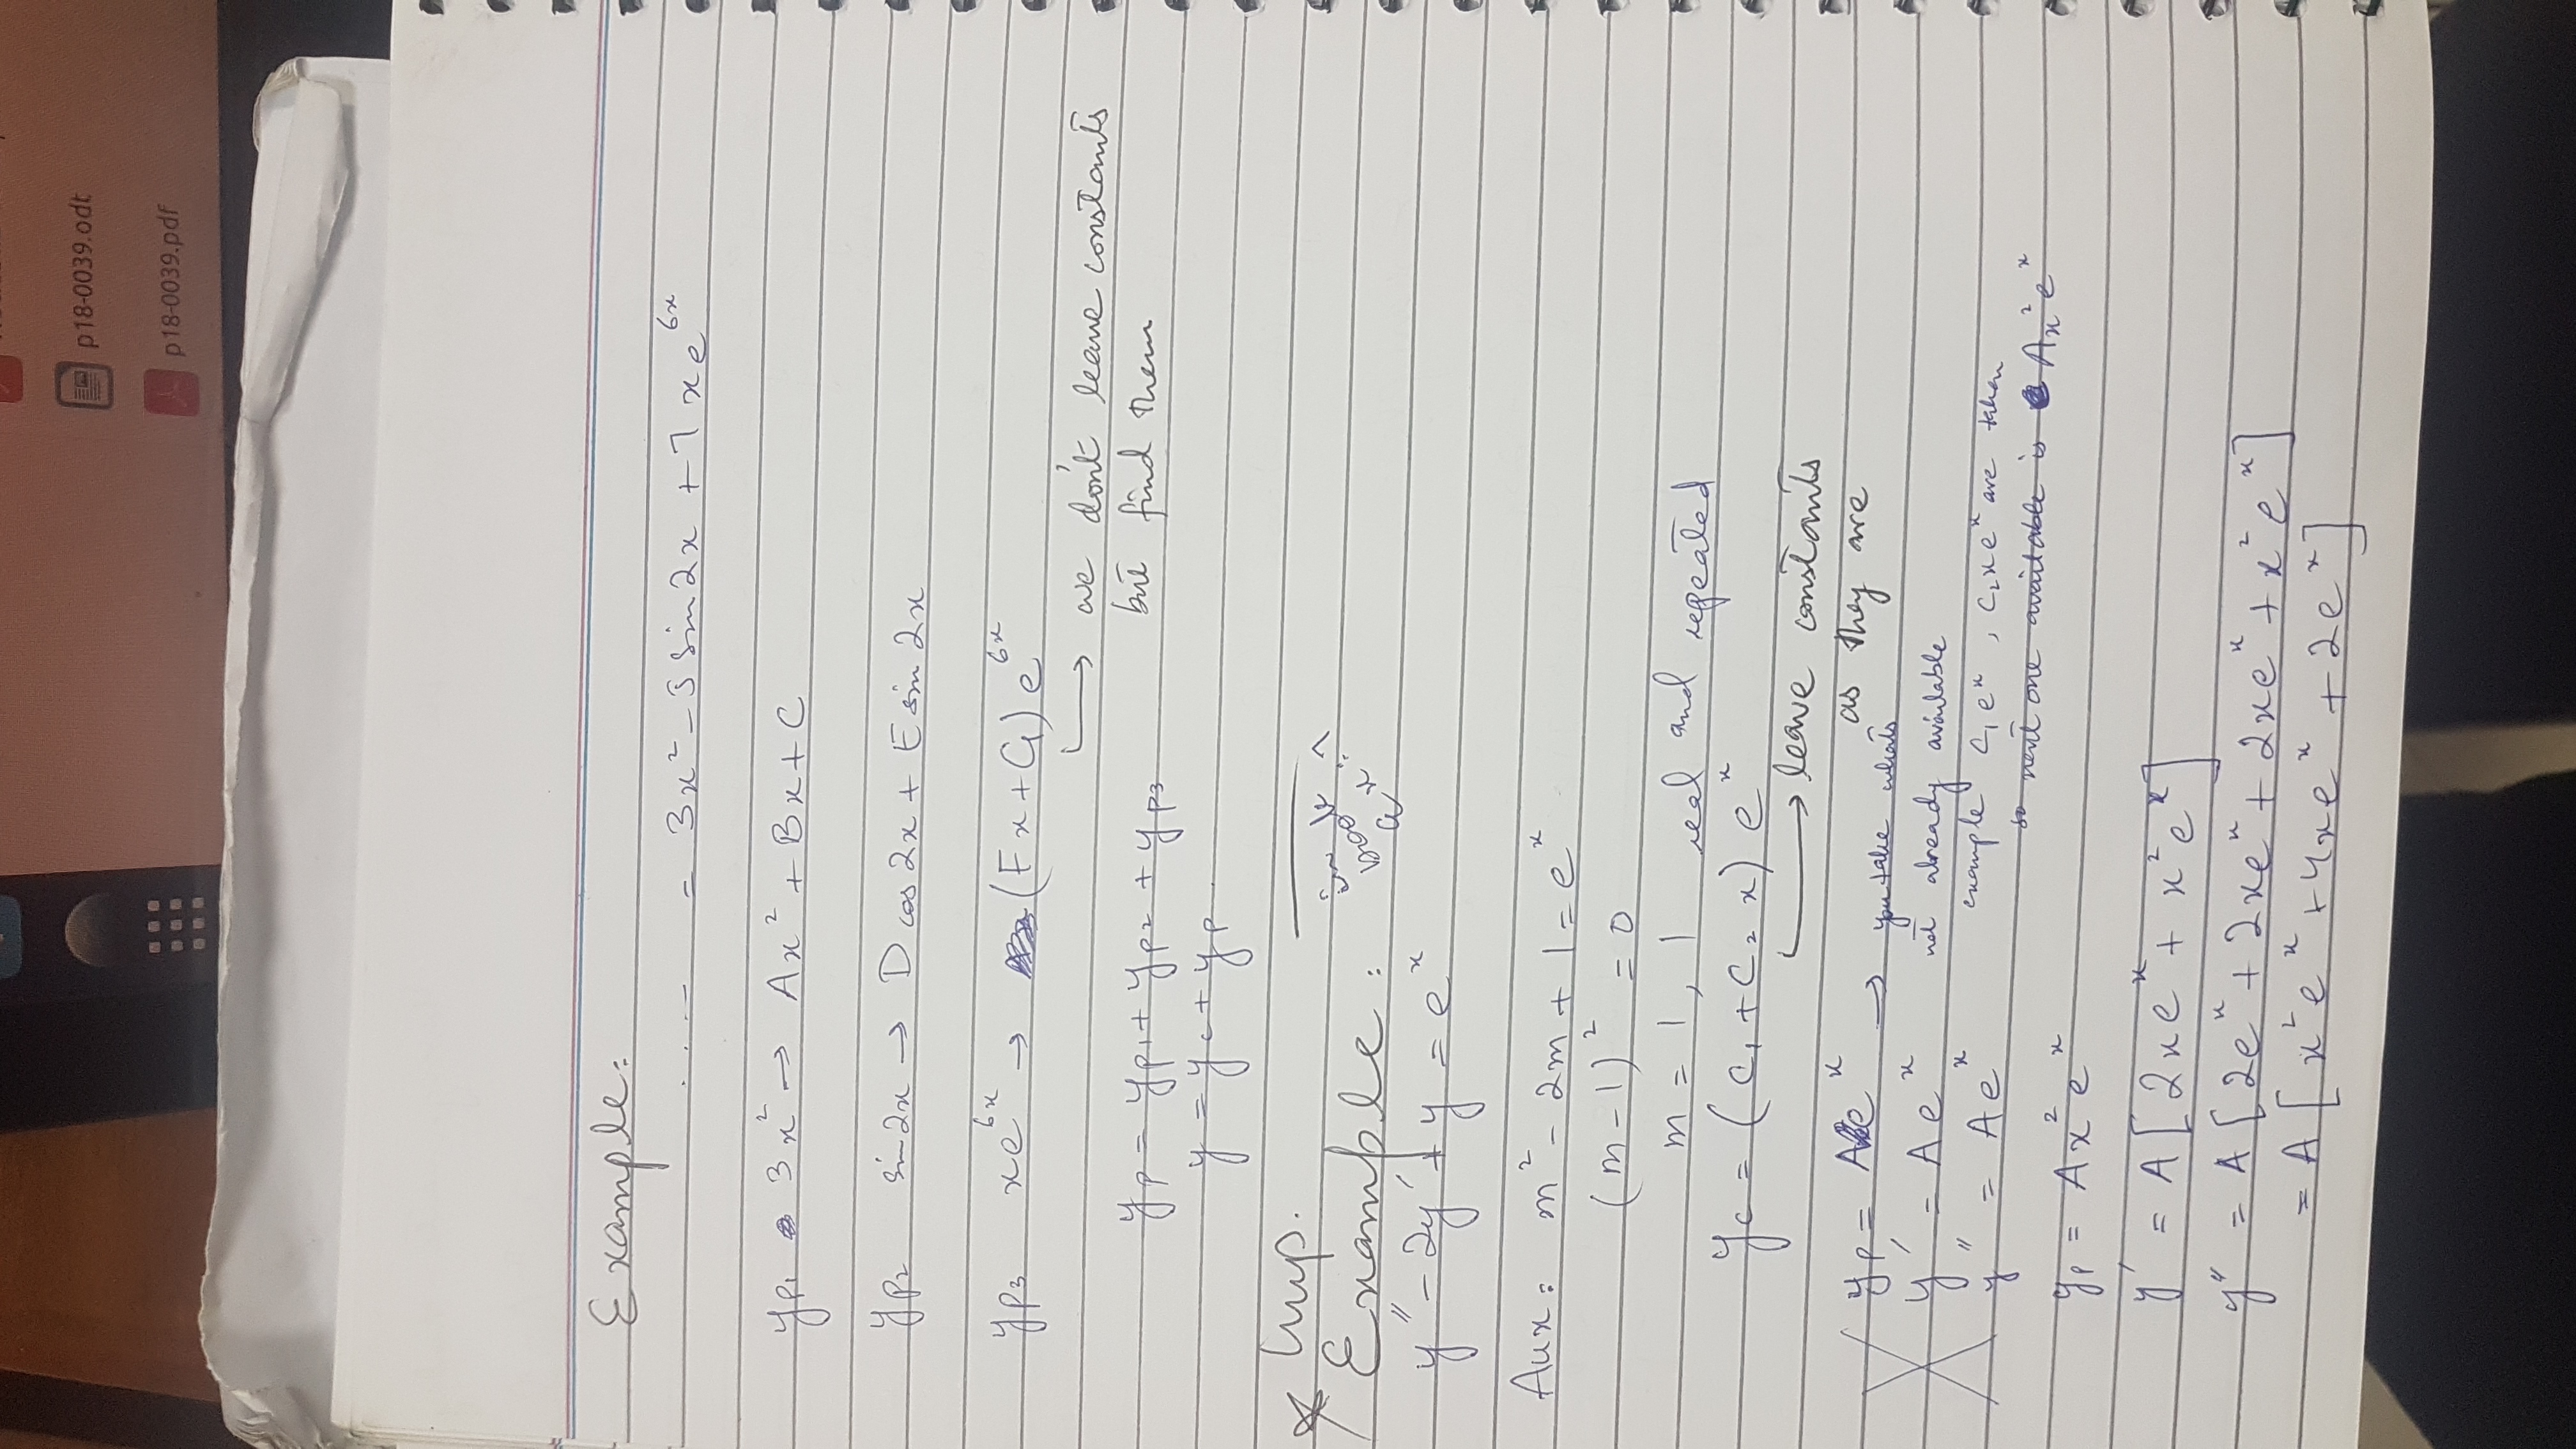 p18-0039.odt
p18-0039.pdf
Example:
.... = 3x² - 5 sin2x + 7 xe^6x
yp₁ 3x² → Ax² + Bx + C
yp₂ sin2x → D cos 2x + E sin 2x
yp₃ xe^6x → (Fx + G) e^6x
↳ we don't leave constants
but find them
yp = yp₁ + yp₂ + yp₃
y = yc + yp
Imp.
in
book
ax:7
Example:
y'' - 2y' + y = e^x
Aux: m² - 2m + 1 = e^x
(m-1)² = 0
m = 1, 1 real and repeated
yc = (c₁ + c₂ x) e^x
↳ leave constants
as they are
yp = Ae^x → you take whats
y' = Ae^x not already available
y'' = Ae^x example c₁e^x, c₂xe^x are taken
so next one available is Ax²e^x
yp = Ax²e^x
y' = A[2xe^x + x²e^x]
y'' = A[2e^x + 2xe^x + 2xe^x + x²e^x]
= A[x²e^x + 4xe^x + 2e^x]